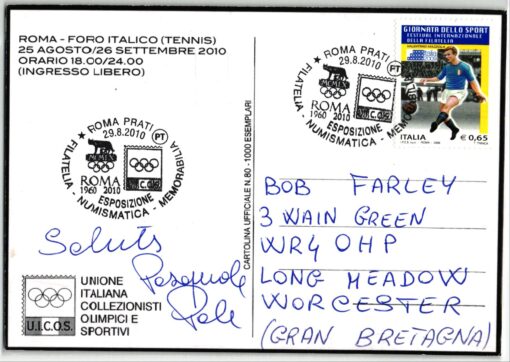 ROMA - FORO ITALICO (TENNIS)
25 AGOSTO/26 SETTEMBRE 2010
ORARIO 18.00/24.00
(INGRESSO LIBERO)
ROMA PRATI
29.8.2010
PT
ROMA
1960 2010
U.I.C.O.S.
ESPOSIZIONE
FILATELIA - NUMISMATICA - MEMORABILIA
ROMA PRATI
29.8.2010
PT
ROMA
1960 2010
U.I.C.O.S.
ESPOSIZIONE
FILATELIA - NUMISMATICA - MEMORABILIA
GIORNATA DELLO SPORT
FESTIVAL INTERNAZIONALE
DELLA FILATELIA
VALENTINO MAZZOLA
ITALIA € 0,65
CARTOLINA UFFICIALE N. 80 - 1000 ESEMPLARI
Saluti
Pasquale
U.I.C.O.S.
UNIONE
ITALIANA
COLLEZIONISTI
OLIMPICI E
SPORTIVI
BOB FARLEY
3 WAIN GREEN
WR4 0HP
LONG MEADOW
WORCESTER
(GRAN BRETAGNA)